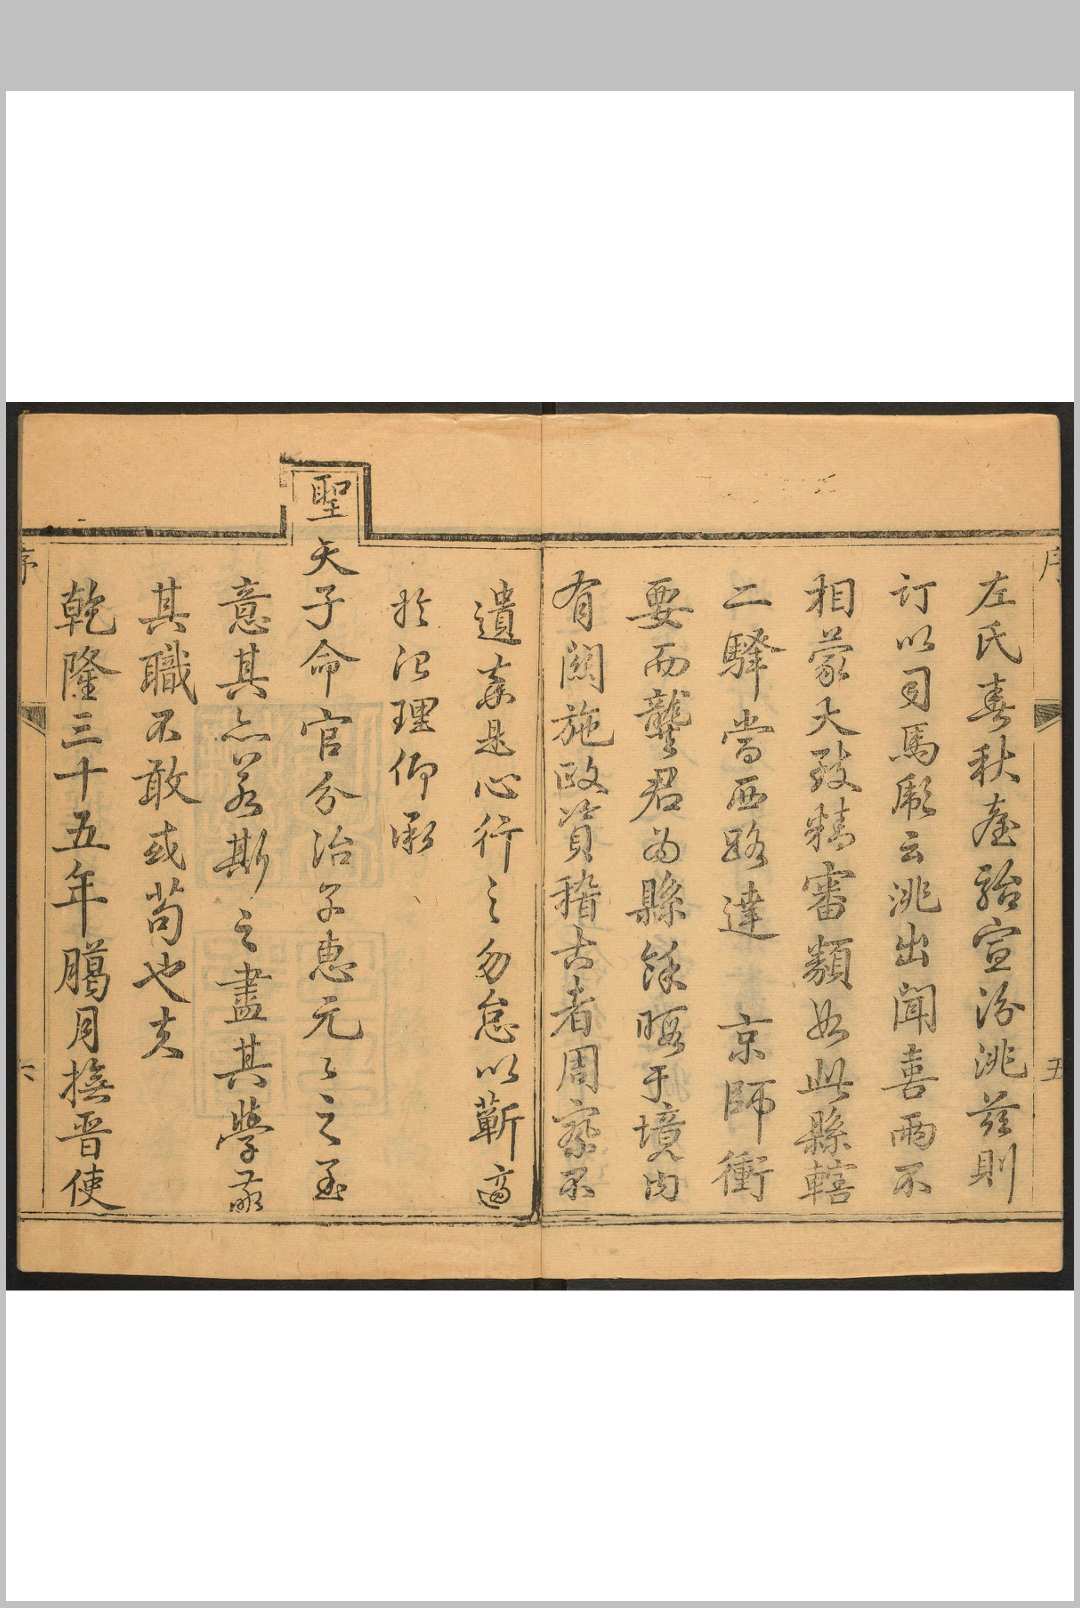 左氏春秋臺駘宣汾洮茲則
訂以司馬彪云洮出聞喜而不
相蒙大致精審類如此縣轄
二驛當西路達京師衝
要而龔君為縣餘暇于境內
有關施政資稽古者周察不
遺奉是心行之勿怠以蘄適
於治理仰承
聖天子命官分治子惠元元之至
意其亦若斯之盡其學敬
其職不敢或苟也夫
乾隆三十五年臈月撫晉使
序
五
序
六